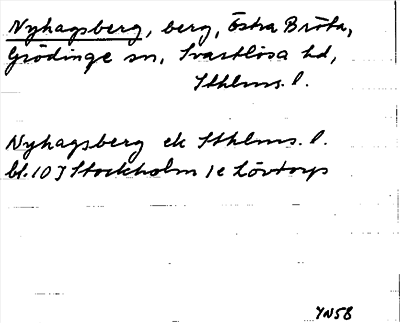 Nyhagsberg, berg, Östra Bröta,
Grödinge sn, Svartlösa hd,
Sthlms. l.
Nyhagsberg ek Sthlms. l.
bl. 10 I Stockholm 1e Lövtorp
YN58